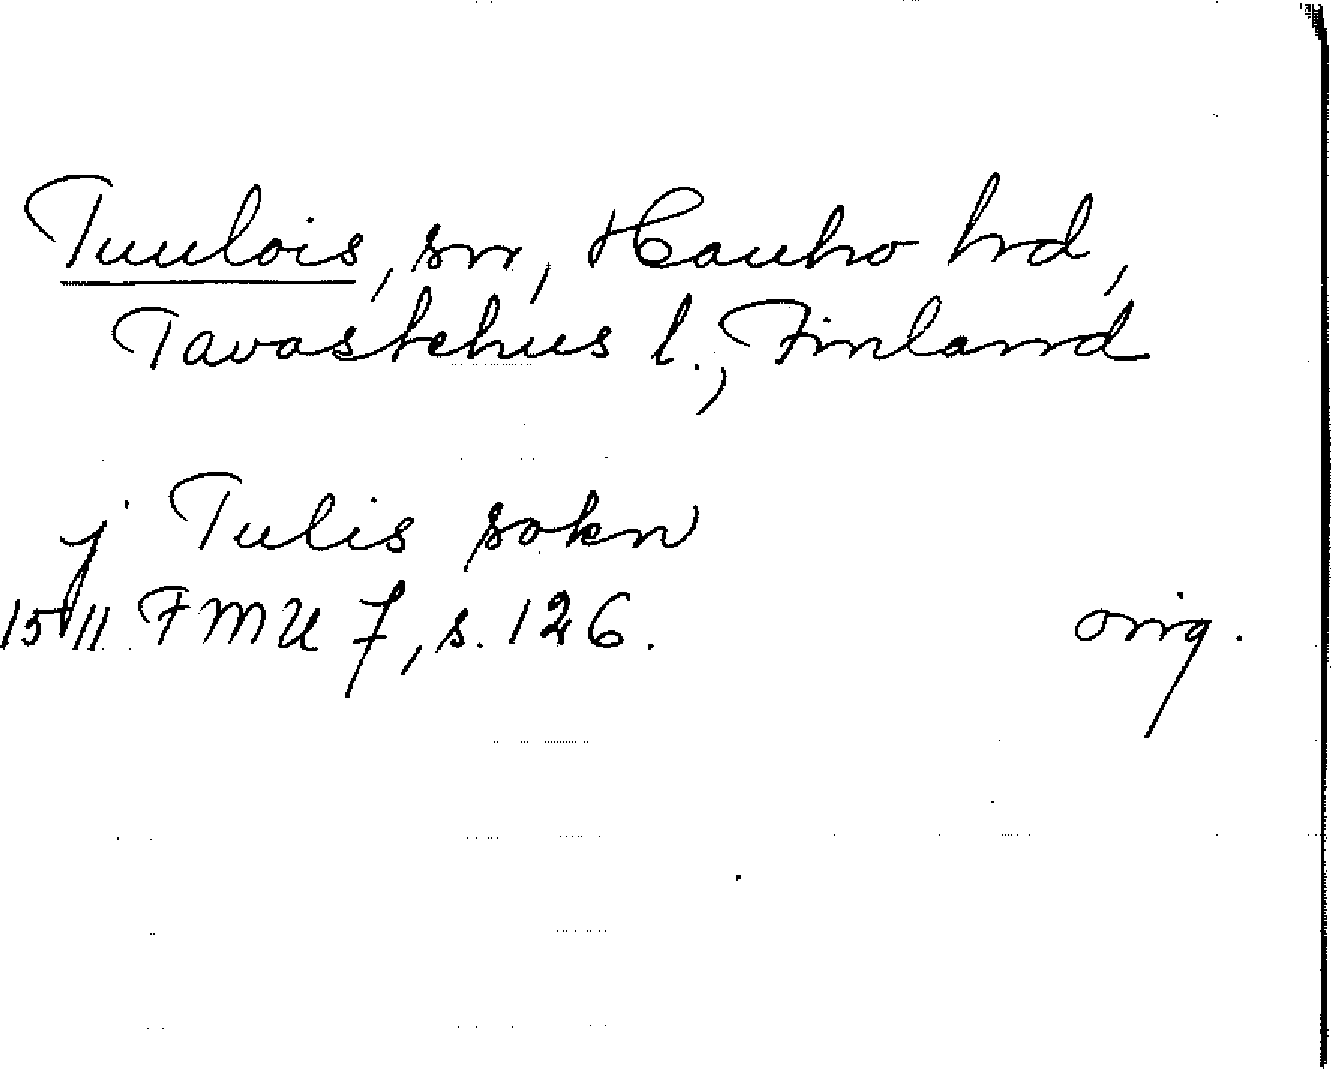 Tuulois, sn, Hauho hrd,
Tavastehus l., Finland
j Tulis sokn
1511 FMU 7, s. 126. orig.